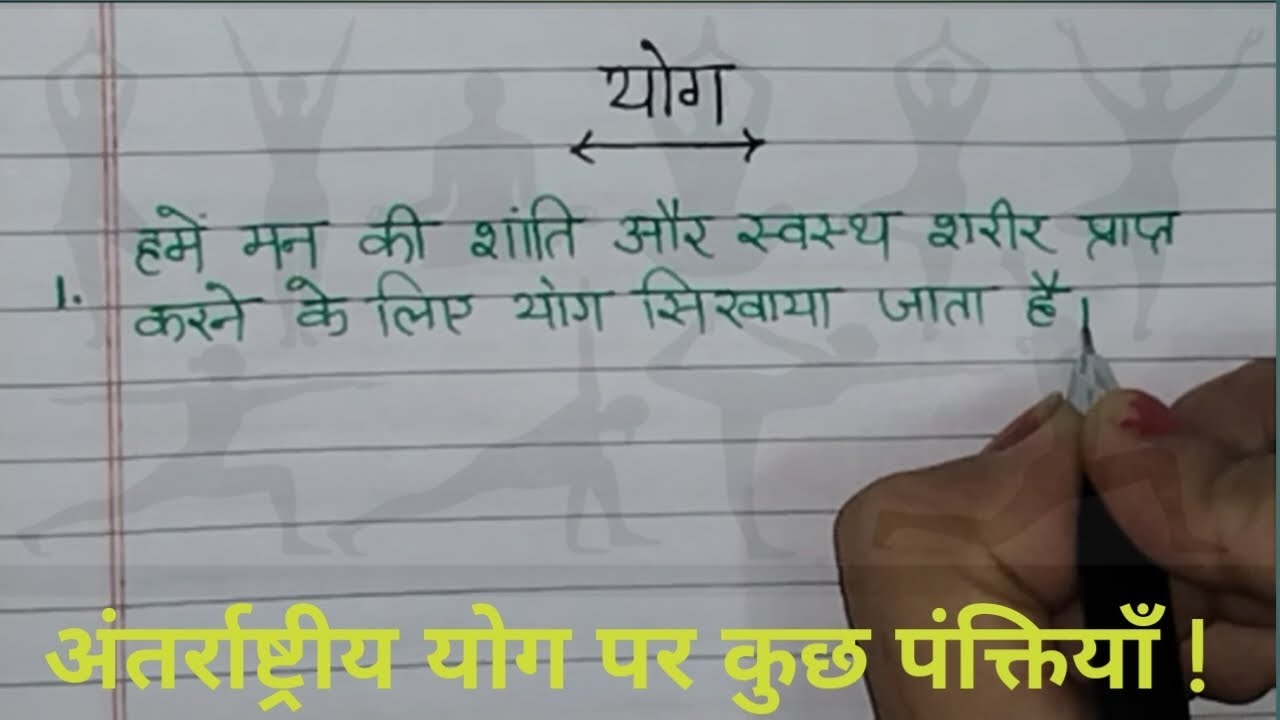 योग
हमें मन की शांति और स्वस्थ शरीर प्राप्त
1. करने के लिए योग सिखाया जाता है।
अंतर्राष्ट्रीय योग पर कुछ पंक्तियाँ !